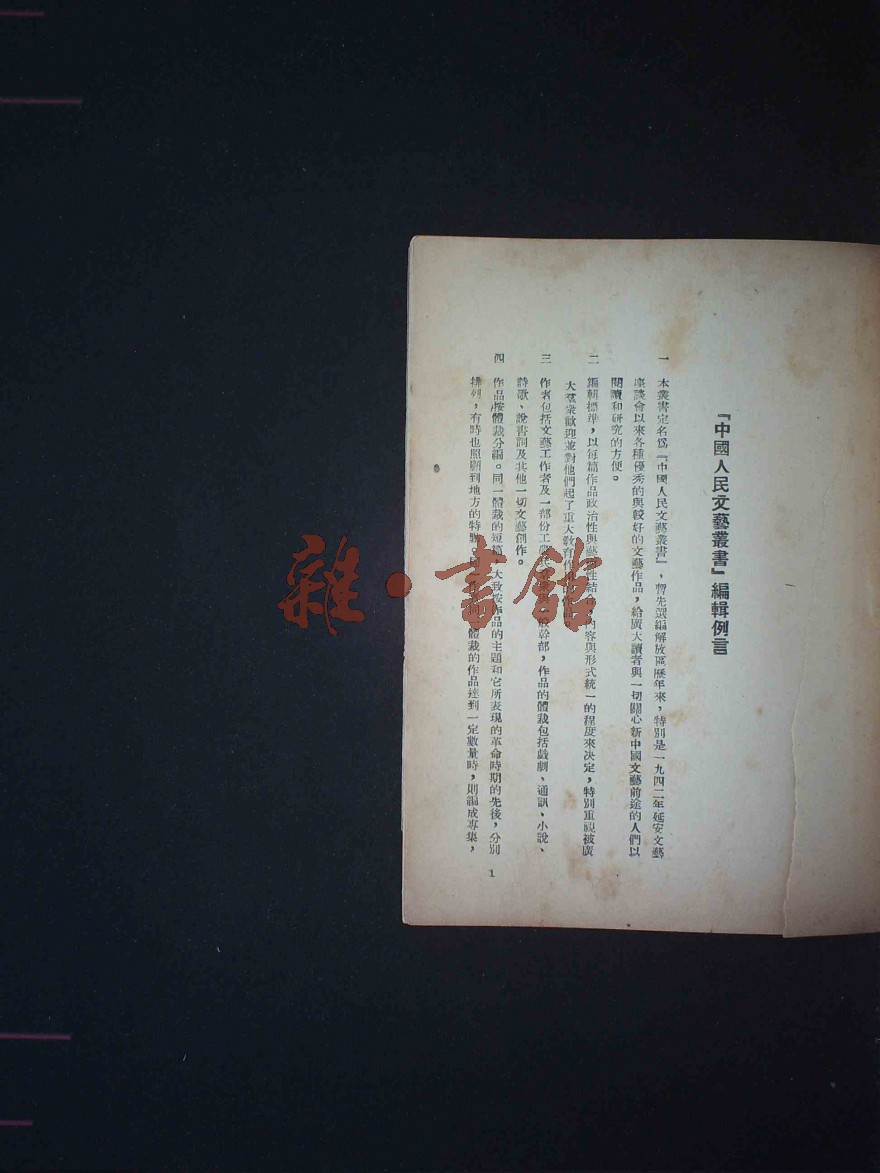 『中國人民文藝叢書』編輯例言
一 本叢書定名為『中國人民文藝叢書』，暫先選編解放區歷年來，特別是一九四二年延安文藝
座談會以來各種優秀的與較好的文藝作品，給廣大讀者與一切關心新中國文藝前途的人們以
閱讀和研究的方便。
二 編輯標準，以每篇作品政治性與藝術性結合，內容與形式統一的程度來決定，特別重視被廣
大羣衆歡迎並對他們起了重大教育作用的作品。
三 作者包括文藝工作者及一部份工農幹部，作品的體裁包括戲劇、通訊、小說、
詩歌、說書詞及其他一切文藝創作。
四 作品按體裁分編。同一體裁的短篇，大致按作品的主題和它所表現的革命時期的先後，分別
排列，有時也照顧到地方的特點。體裁的作品達到一定數量時，則編成專集，
1
雜·書館